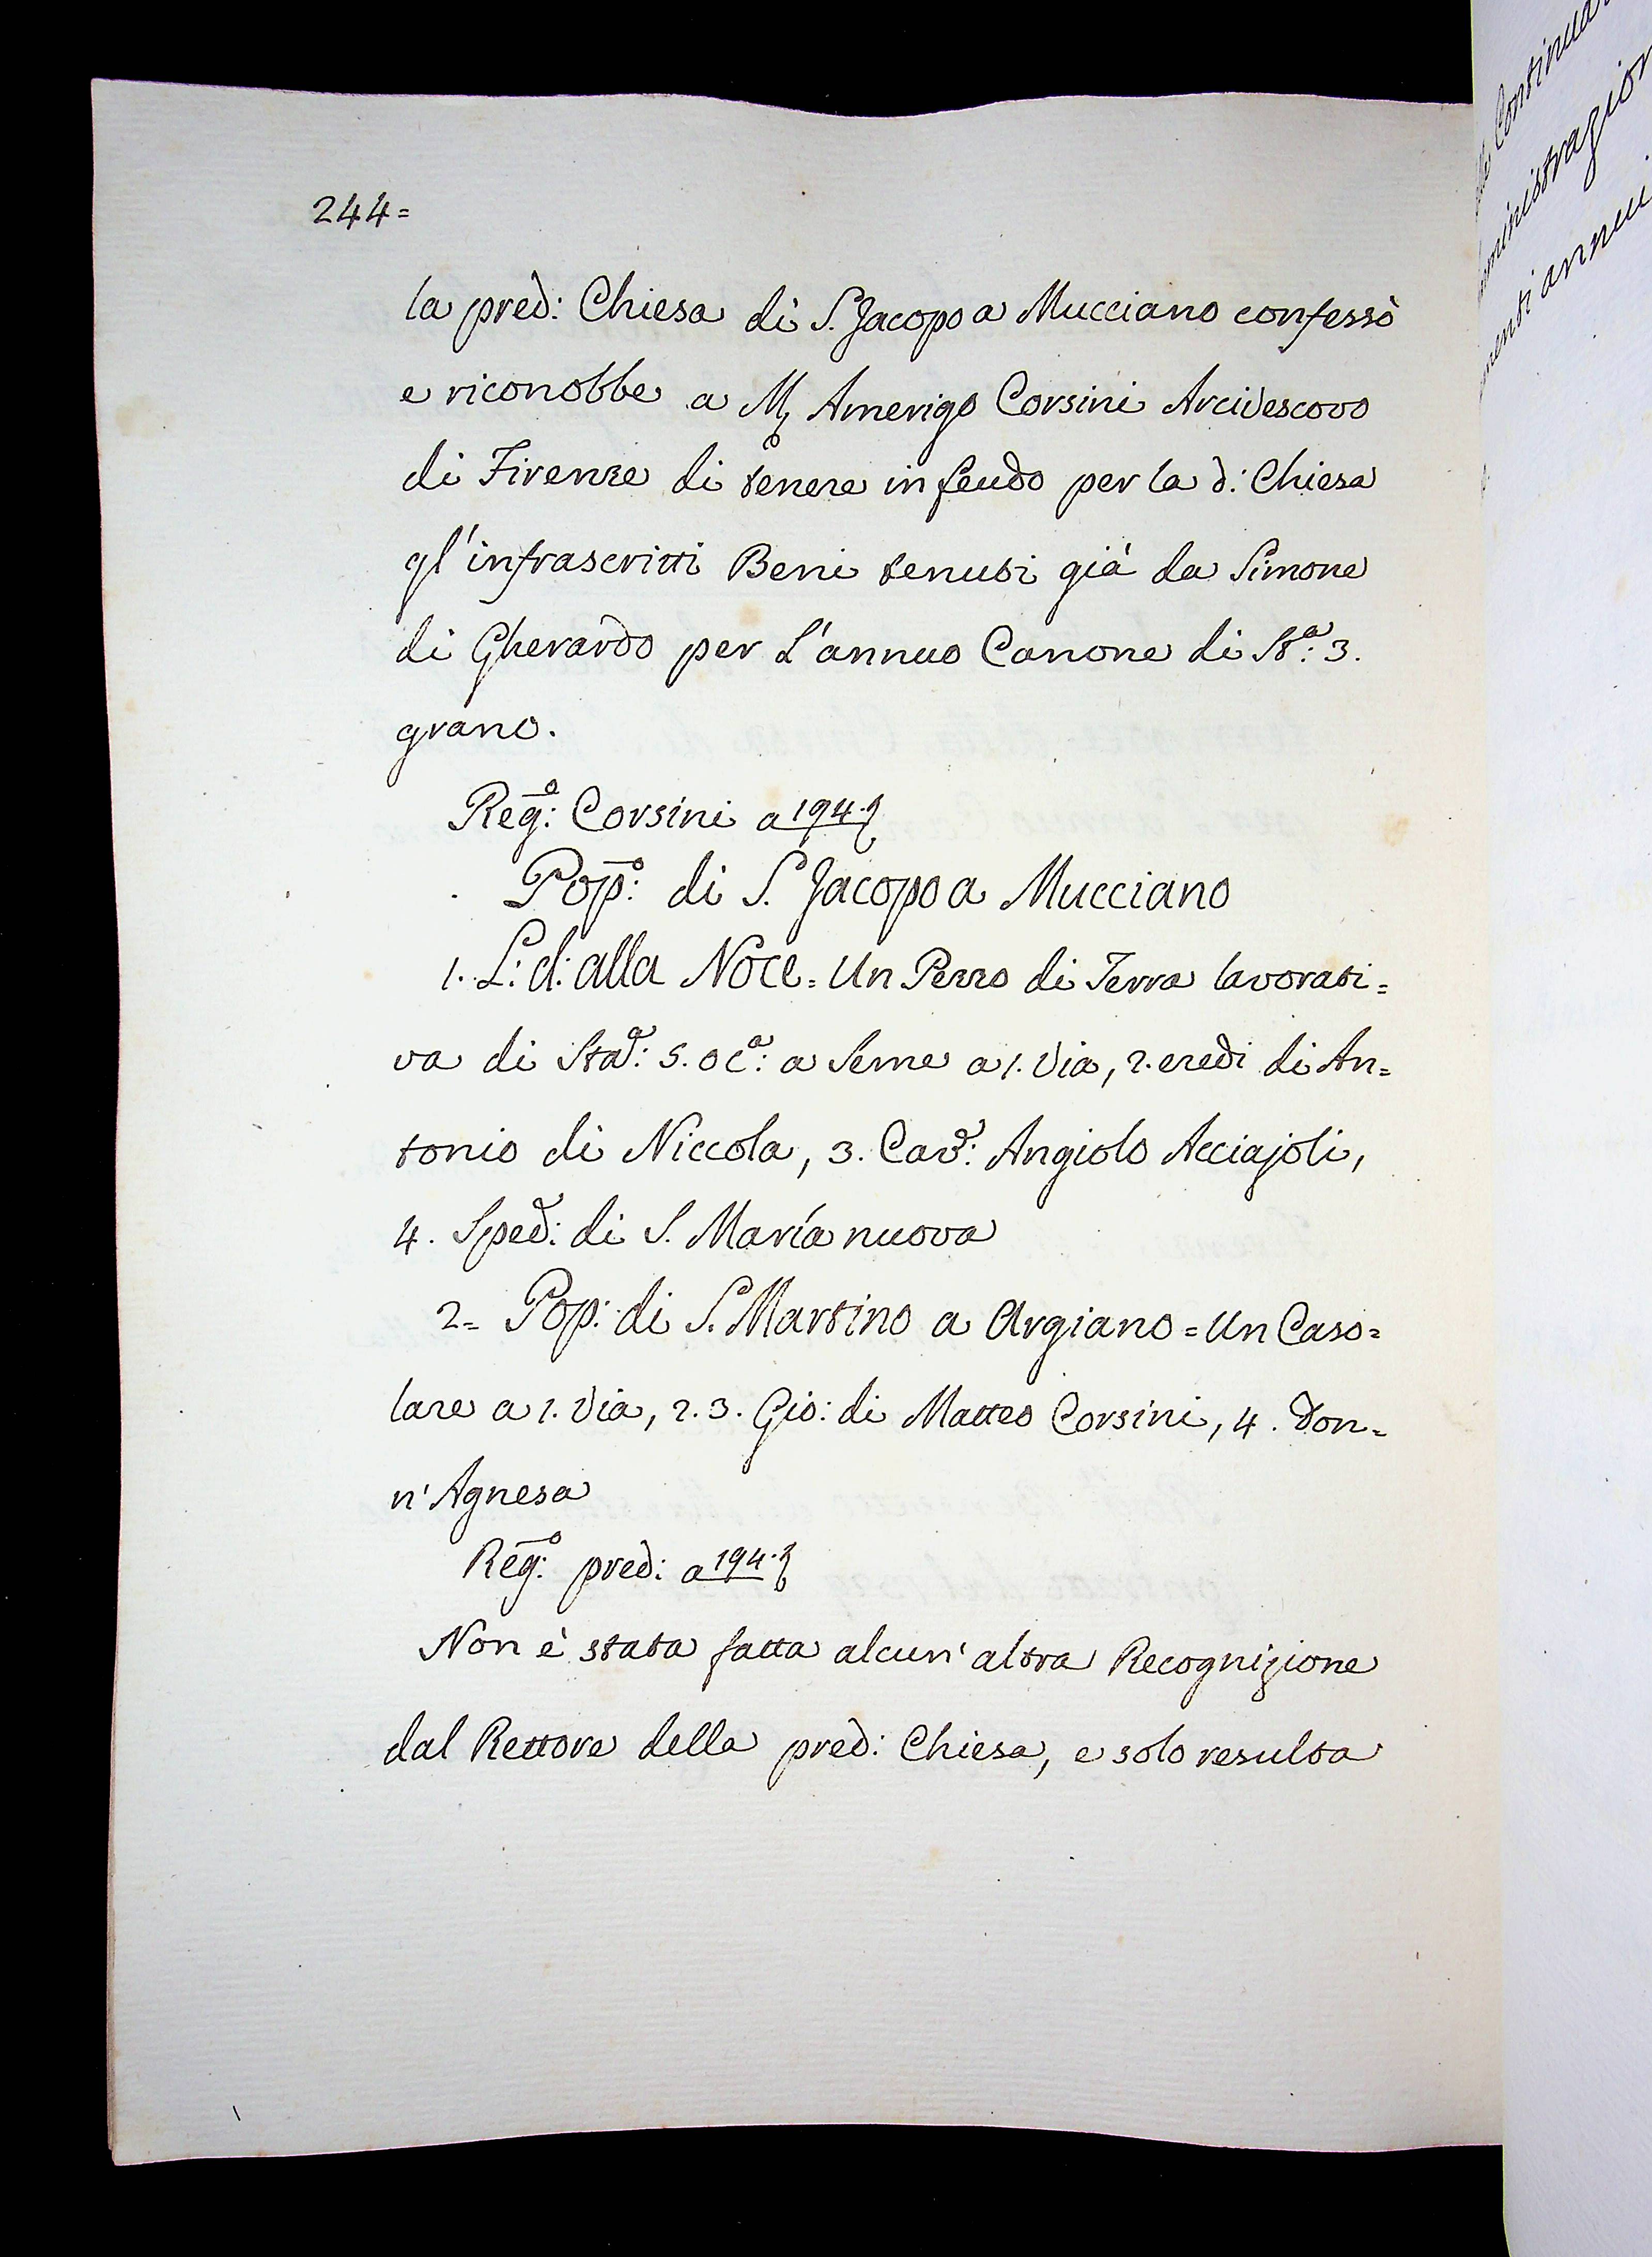 244=
la pred: Chiesa di S. Jacopo a Mucciano confessò
e riconobbe a M. Amerigo Corsini Arcivescovo
di Firenze di tenere in feudo per la d: Chiesa
gl'infrascritti Beni tenuti già da Simone
di Gherardo per L'annuo Canone di St.ª: 3.
grano.
Reg.º: Corsini a 194.
Pop.º: di S. Jacopo a Mucciano
1. L: d: alla Noce = Un Pezzo di Terra lavorati=
va di Sta.ª: 5. o c.ª: a Seme a 1. Via, 2. eredi di An=
tonio di Niccola, 3. Cav: Angiolo Acciajoli,
4. Sped: di S. María nuova
2= Pop: di S. Martino a Argiano = Un Caso=
lare a 1. Via, 2. 3. Gio: di Matteo Corsini, 4. Don=
n'Agnesa
Reg.º: pred: a 194.
Non è stata fatta alcun'altra Recognizione
dal Rettore della pred: Chiesa, e solo resulta
Continua
ministrazion
menti annui